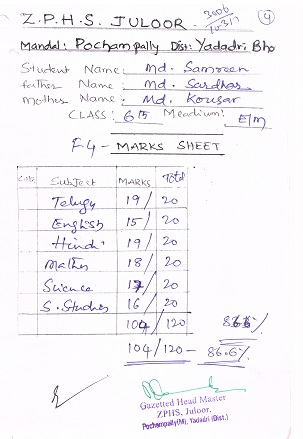 Z.P.H.S. JULOOR
4
Mandal: Pochampally Dist: Yadadri Bho
Student Name: Md. Samreen
Father Name: Md. Sardhar
Mother Name: Md. Kousar
CLASS: 6th Meadium: E/m
F4 - MARKS SHEET
S.No Subject MARKS Total
Telugu 19/20
English 15/20
Hindi 19/20
Maths 18/20
Science 17/20
S. Studies 16/20
104/120 86.6%
104/120 - 86.6%
Gazetted Head Master
ZPHS, Juloor,
Pochampally(M), Yadadri (Dist.)